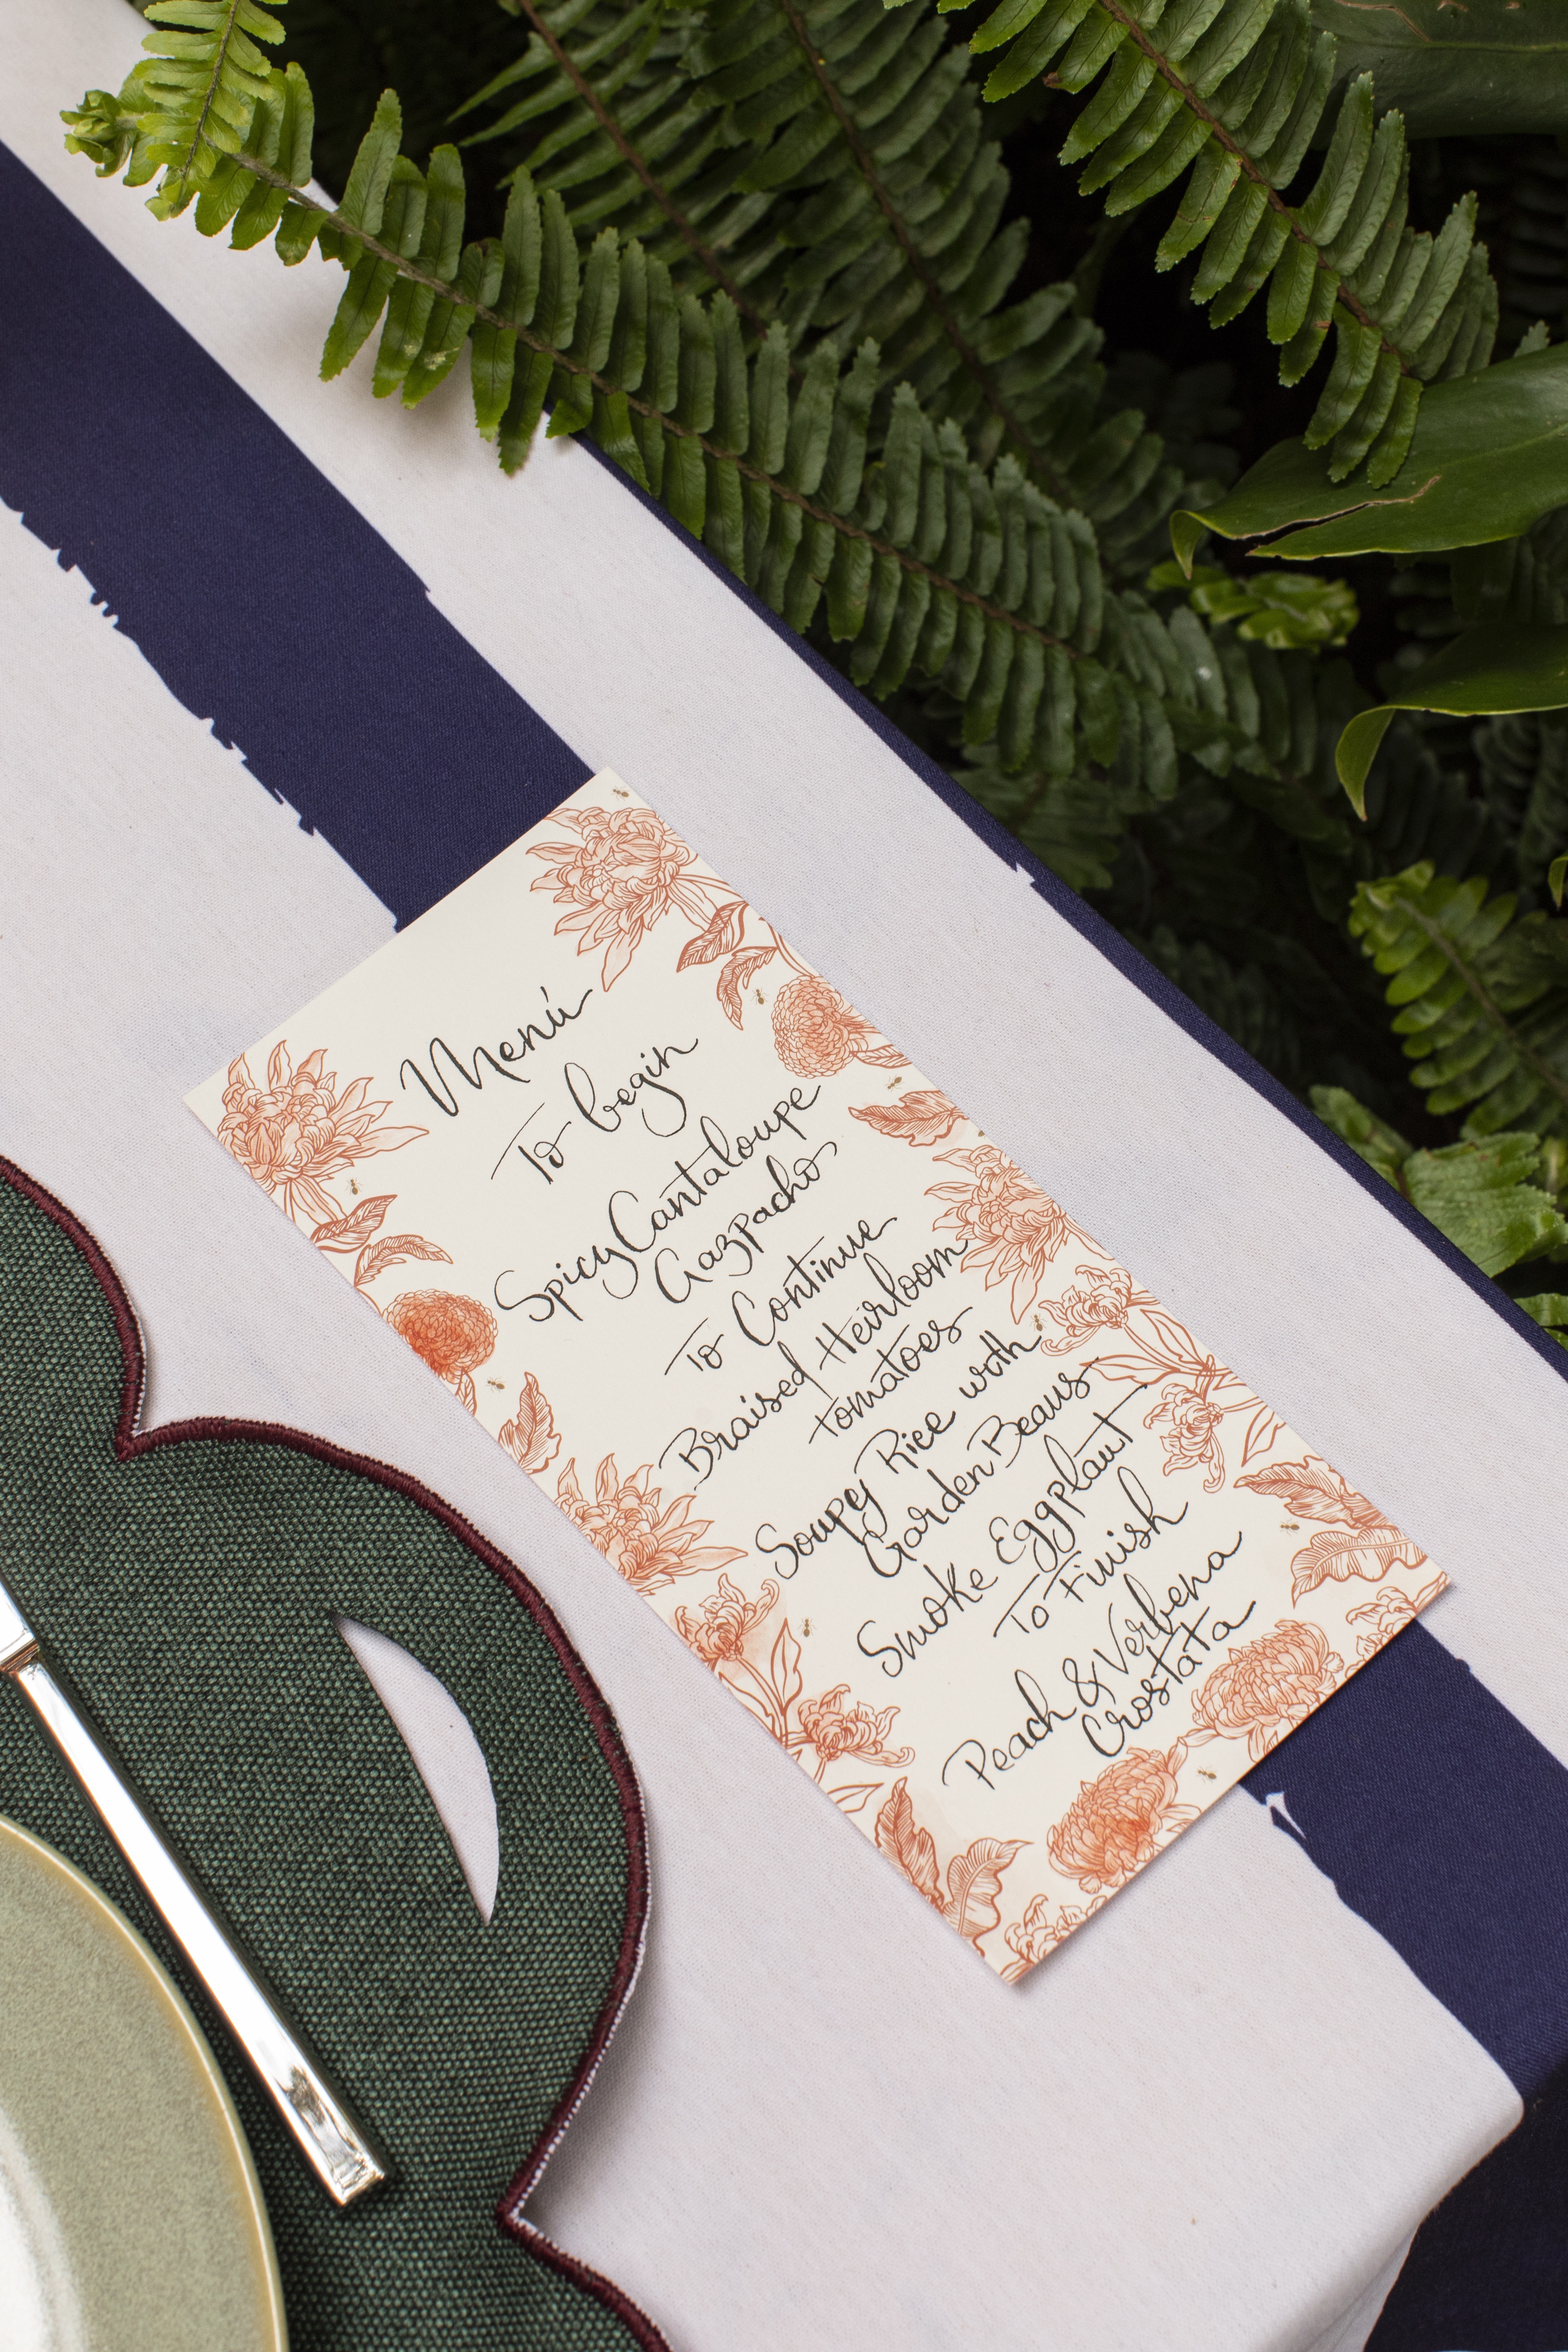 Menú
To begin
Spicy Cantaloupe
Gazpacho
To Continue
Braised Heirloom
tomatoes
Soupy Rice with
Garden Beans
Smoke Eggplant
To Finish
Peach & Verbena
Crostata